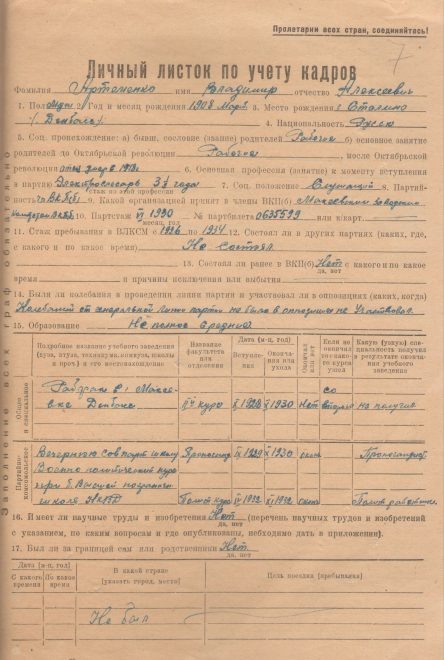 Пролетарии всех стран, соединяйтесь!
7
Личный листок по учету кадров
Фамилия Артеменко имя Владимир отчество Алексеевич
1. Пол Муж. 2. Год и месяц рождения 1908 Март 3. Место рождения г. Сталино
(Донбасс). 4. Национальность Русск
5. Соц. происхождение: а) бывш. сословие (звание) родителей Рабочие б) основное занятие
родителей до Октябрьской революции Рабочие после Октябрьской
революции отец умер в 1918г. 6. Основная профессия (занятие) к моменту вступления
в партию Электрослесарь 3½ года 7. Соц. положение Служащий 8. Партий-
стаж по этой профессии
ность ВКП(б) 9. Какой организацией принят в члены ВКП(б) Макеевским заводским
10. Партстаж VI 1930 № партбилета 0635599 или к/карт. —
месяц, год
11. Стаж пребывания в ВЛКСМ с 1926 по 1934 12. Состоял ли в других партиях (каких, где,
с какого и по какое время) Не состоял
13. Состоял ли ранее в ВКП(б) Нет с какого и по какое
да, нет
время — и причины исключения или выбытия —
14. Были ли колебания в проведении линии партии и участвовал ли в оппозициях (каких, когда)
Колебаний от генеральной линии партии не было в оппозиции не участвовал.
15. Образование Не полное среднее
Заполнение всех граф обязательно
Подробное название учебного заведения (вуза, втуза, техникума, комвуза, школы и проч.) и его местонахождение
Название факультета или отделения
Дата (м-ц, год)
Вступления
Окончания или ухода
Окончил или нет
Если не окончил то с какого курса ушел
Какую (узкую) специальность получил в результате окончания учебного заведения
Общее
Рабфак в г. Макеевке Донбасс II й курс 1928 1930 Нет со второго не получил
Партийно-комсомольское
Вечернюю совпартшколу Пропаганд. 1929 1930 окон. Пропагандист
Военно политический курс
при Высшей пограничной
школе НКВД Политкурс 1932 1932 окон. Полит работник
16. Имеет ли научные труды и изобретения Нет (перечень научных трудов и изобретений
да, нет
с указанием, по каким вопросам и где опубликованы, необходимо дать в приложении).
17. Был ли за границей сам или родственники Нет
да, нет
Дата (м-ц, год)
С какого времени
По какое время
В какой стране (указать город, место)
Цель поездки (пребывания)
Не был